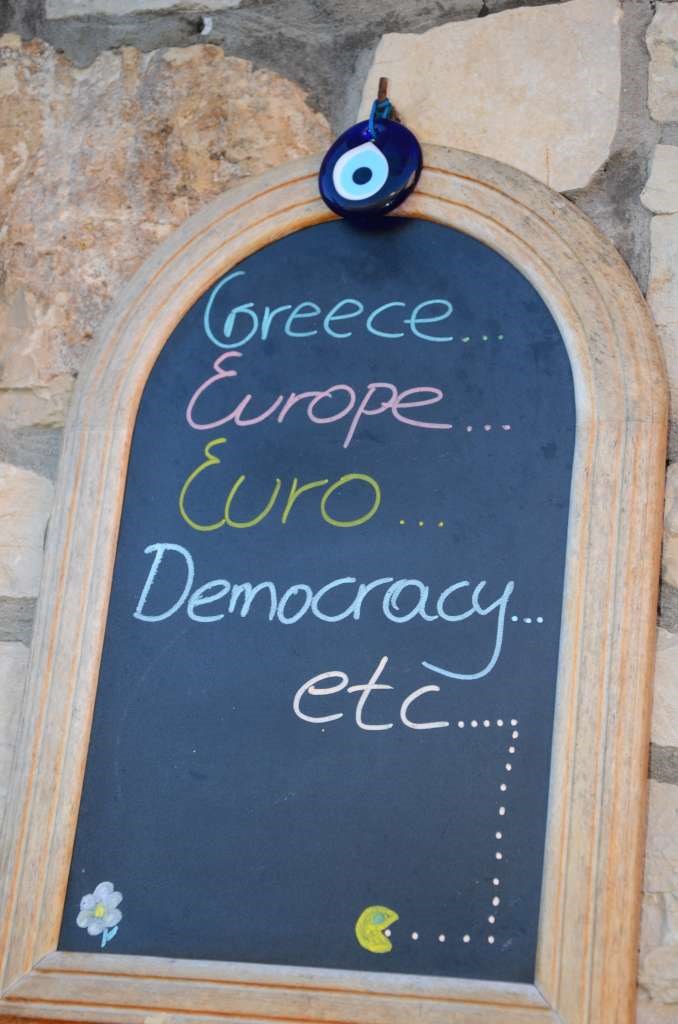 Greece...
Europe...
Euro...
Democracy...
etc.....